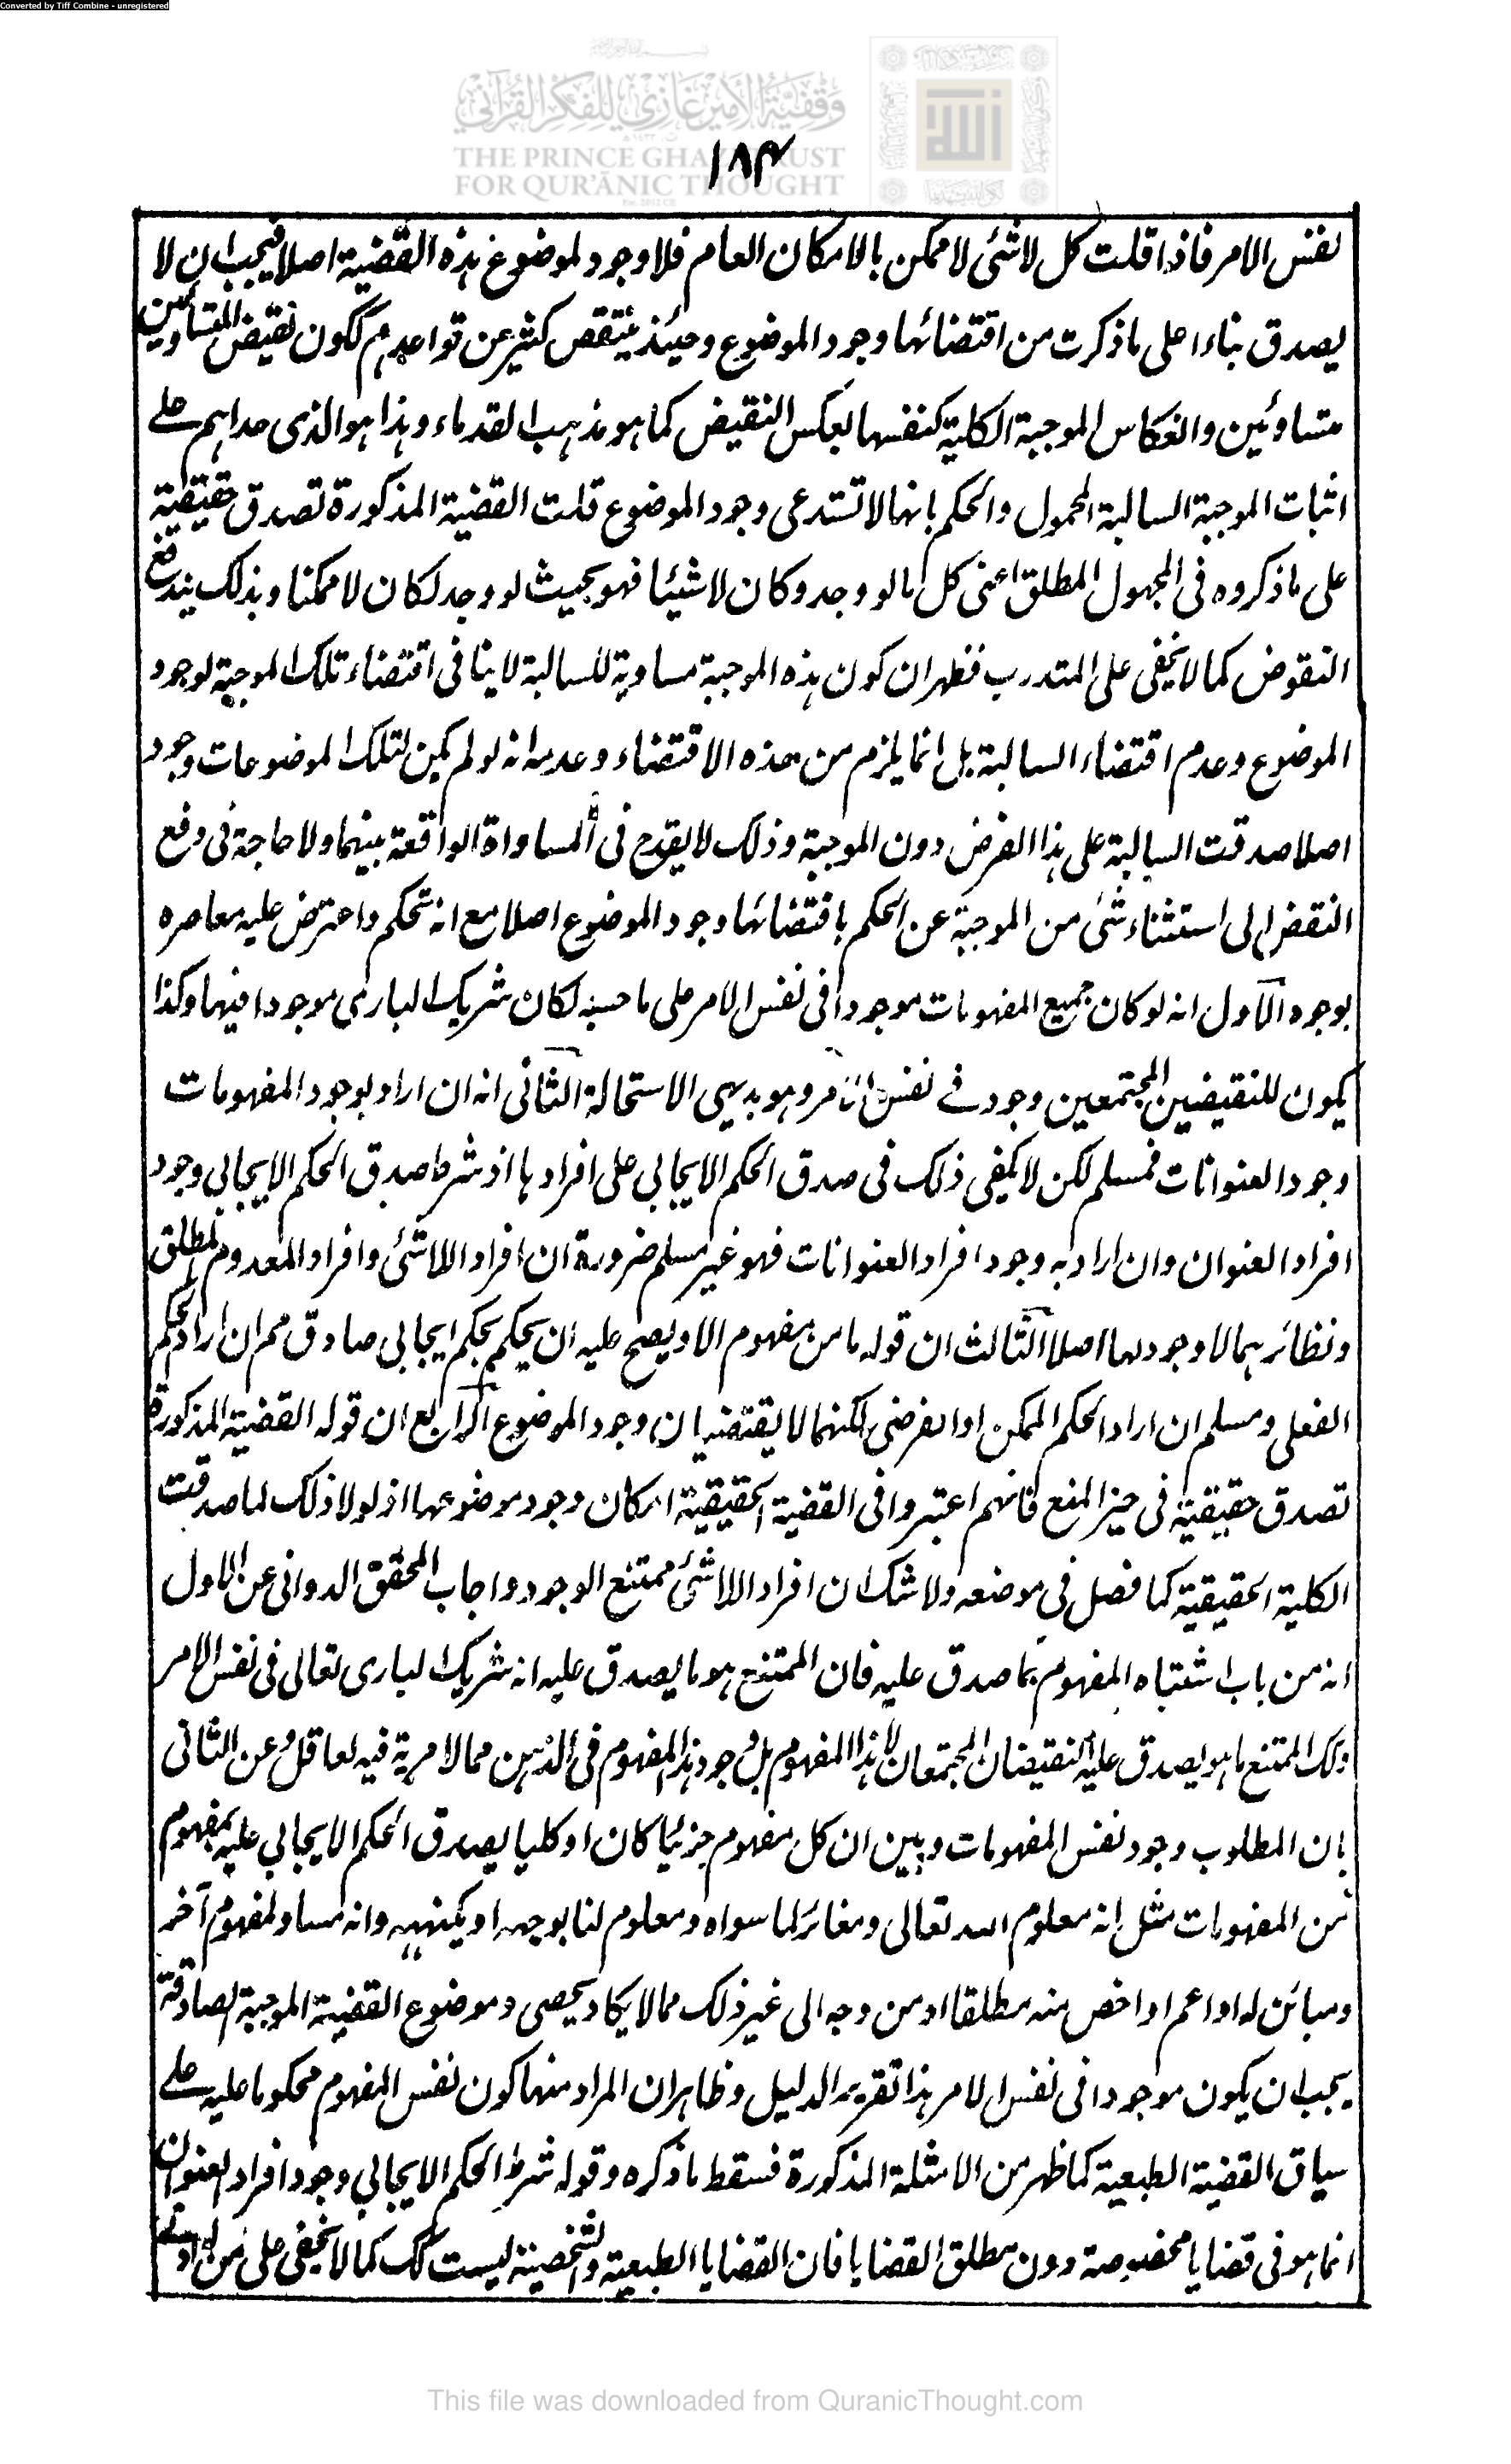 Converted by Tiff Combine - unregistered
وقفية الأمير غازي للفكر القرآني
THE PRINCE GHAZI TRUST
FOR QUR'ĀNIC THOUGHT
١٨٤
نفس الامر فاذا قلت كل لاشئ لا ممكن بالامكان العام فلا وجود لموضوع هذه القضية اصلا فيجب ان لا
يصدق بناءا على ما ذكرت من اقتضائها وجود الموضوع وحينئذ ينتقض كثير من قواعدهم ككون نقيض المتساويين
متساوئين وانعكاس الموجبة الكلية كنفسها بعكس النقيض كما هو مذهب القدماء وهذا هو الذى حداهم على
اثبات الموجبة السالبة المحمول والحكم بانها لا تستدعى وجود الموضوع قلت القضية المذكورة تصدق حقيقية
على ما ذكروه فى المجهول المطلق اعنى كل ما لو وجد وكان لاشيئا فهو بحيث لو وجد لكان لا ممكنا وبذلك يندفع
النقوض كما لا يخفى على المتدرب فظهر ان كون هذه الموجبة مساوية للسالبة لا ينافى اقتضاء تلك الموجبة لوجود
الموضوع وعدم اقتضاء السالبة بل انما يلزم من هذه الاقتضاء وعدمه انه لو لم يكن لتلك الموضوعات وجود
اصلا صدقت السالبة على هذا الفرض دون الموجبة وذلك لا يقدح فى المساواة الواقعة بينهما ولا حاجة فى دفع
النقض الى استثناء شئ من الموجبة عن الحكم باقتضائها وجود الموضوع اصلا مع انه تحكم واعترض عليه معاصره
بوجوه الاول انه لو كان جميع المفهومات موجودا فى نفس الامر على ما حسبه لكان شريك البارى موجودا فيها وكذا
يكون للنقيضين المجتمعين وجود فے نفس الامر وهو بديهى الاستحالة الثانى انه ان اراد بوجود المفهومات
وجود العنوانات فمسلم لكن لا يكفى ذلك فى صدق الحكم الايجابى على افرادها اذ شرط صدق الحكم الايجابى وجود
افراد العنوان وان اراد به وجود افراد العنوانات فهو غير مسلم ضرورة ان افراد اللاشئ وافراد المعدوم المطلق
ونظائرهما لا وجود لها اصلا الثالث ان قوله ما من مفهوم الا ويصح عليه ان يحكم بحكم ايجابى صادق مم ان اراد الحكم
الفعلى ومسلم ان اراد الحكم الممكن او الفرضى لكنهما لا يقتضيان وجود الموضوع الرابع ان قوله القضية المذكورة
تصدق حقيقية فى حيز المنع فانهم اعتبروا فى القضية الحقيقية امكان وجود موضوعها اذ لولا ذلك لما صدقت
الكلية الحقيقية كما فصل فى موضعه ولا شك ان افراد اللاشئ ممتنع الوجود واجاب المحقق الدوانى عن الاول
انه من باب اشتباه المفهوم بما صدق عليه فان الممتنع هو ما يصدق عليه انه شريك البارى تعالى فى نفس الامر
وكذا الممتنع ما هو يصدق عليه النقيضان المجتمعان لا هذا المفهوم بل وجود هذا المفهوم فى الذهن مما لا مرية فيه لعاقل وعن الثانى
بان المطلوب وجود نفس المفهومات وبين ان كل مفهوم جزئيا كان او كليا يصدق الحكم الايجابى عليه بمفهوم
من المفهومات مثل انه معلوم الله تعالى ومغائر لما سواه ومعلوم لنا بوجهه او بكنهه وانه مساو لمفهوم آخر
ومبائن له او اعم او اخص منه مطلقا او من وجه الى غير ذلك مما لا يكاد يحصى وموضوع القضية الموجبة الصادقة
يجب ان يكون موجودا فى نفس الامر هذا تقرير الدليل وظاهر ان المراد منها كون نفس المفهوم محكوما عليه على
سياق القضية الطبعية كما ظهر من الامثلة المذكورة فسقط ما ذكره وقوله شرط الحكم الايجابى وجود افراد العنوان
انما هو فى قضايا مخصوصة دون مطلق القضايا فان القضايا الطبعية والشخصية ليست كك كما لا يخفى على من له ادنى
This file was downloaded from QuranicThought.com